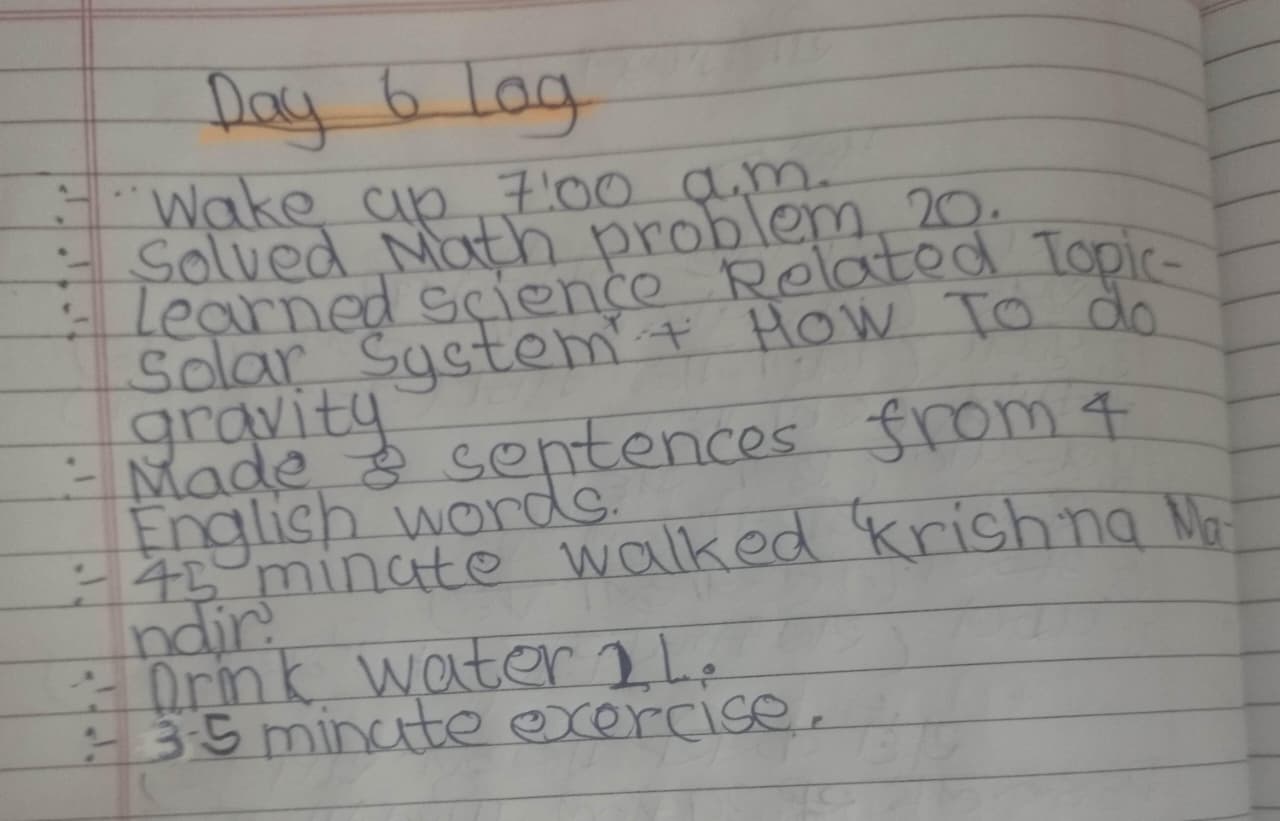 Day 6 log
:- Wake up 7:00 a.m.
:- Solved Math problem 20.
:- Learned science Related Topic-
Solar System + How To do
gravity
:- Made 8 sentences from 4
English words.
:- 45 minute walked "Krishna Ma-
ndir"
:- Drink water 2 L.
:- 35 minute exercise.